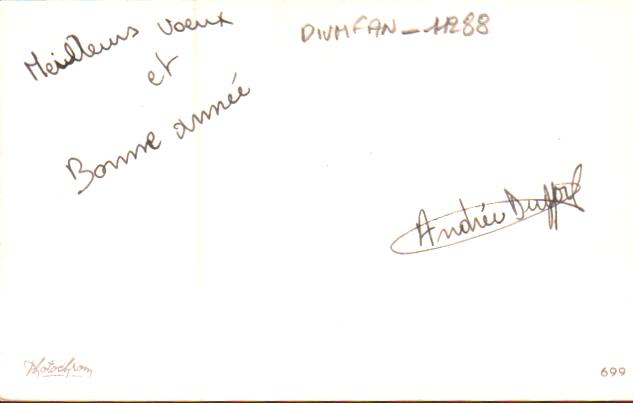 Meilleurs voeux
et
Bonne année
DIVMFAN-1288
Andrée
Photochrom
699